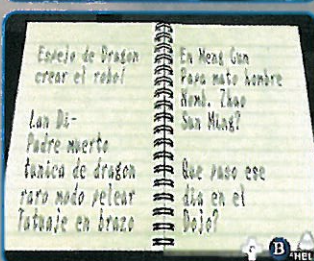 Espejo de Dragon
crear el robo!
Lan Di-
Padre muerto
tunica de dragon
raro modo pelear
Tatuaje en brazo
En Meng Cun
Papa mato hombre
Nomb. Zhao
Sun Ming?
Que paso ese
dia en el
Dojo?
B
HEL